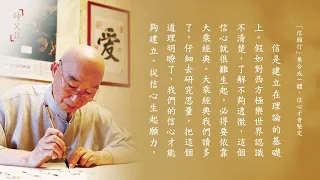 「信願行」集合成一體，信心才會堅定
信是建立在理論的基礎
上。假如對西方極樂世界認識
不清楚，了解不夠透徹，這個
信心就很難生起，必得要依靠
大乘經典。大乘經典我們讀多
了，仔細去研究思量，把這個
道理明瞭了，我們的信心才能
夠建立。從信心生起願力，
愛